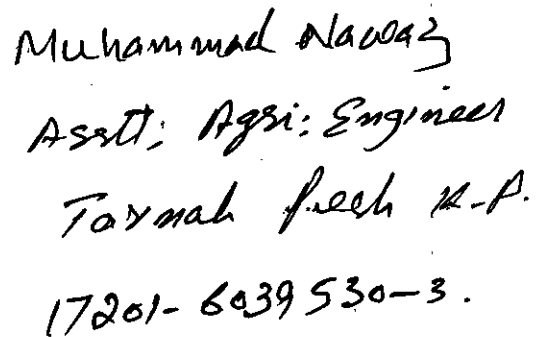 Muhammad Nawaz
Asstt; Agri: Engineer
Tarnab Pesh K.P.
17201-6039530-3.